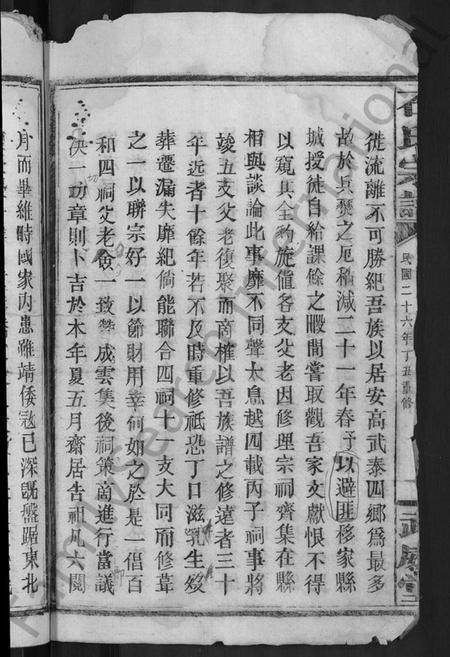 徙流離不可勝紀吾族以居安高武泰四鄉爲最多
故於兵燹之厄稍減二十一年春予以避匪移家縣
城授徒自給課餘之暇間嘗取觀吾家文獻恨不得
以窺其全豹旋値各支父老因修理宗祠齊集在縣
相與談論此事靡不同聲太息越四載丙子祠事將
竣五支父老復聚而商榷以吾族譜之修遠者三十
年近者十餘年若不及時重修祇恐丁口滋乳生歿
葬遷漏失靡紀倘能聯合四祠十一支大同而修葺
之一以聯宗好一以節財用幸何如之於是一倡百
和四祠父老僉一致贊成雲集後祠策畫進行當議
決一切章則卜吉於本年夏五月齋居告祖凡六閱
月而畢維時國家內患雖靖倭寇已深旣盤踞東北
氏宗譜
民國二十六年丁丑重修
FamilySearch International